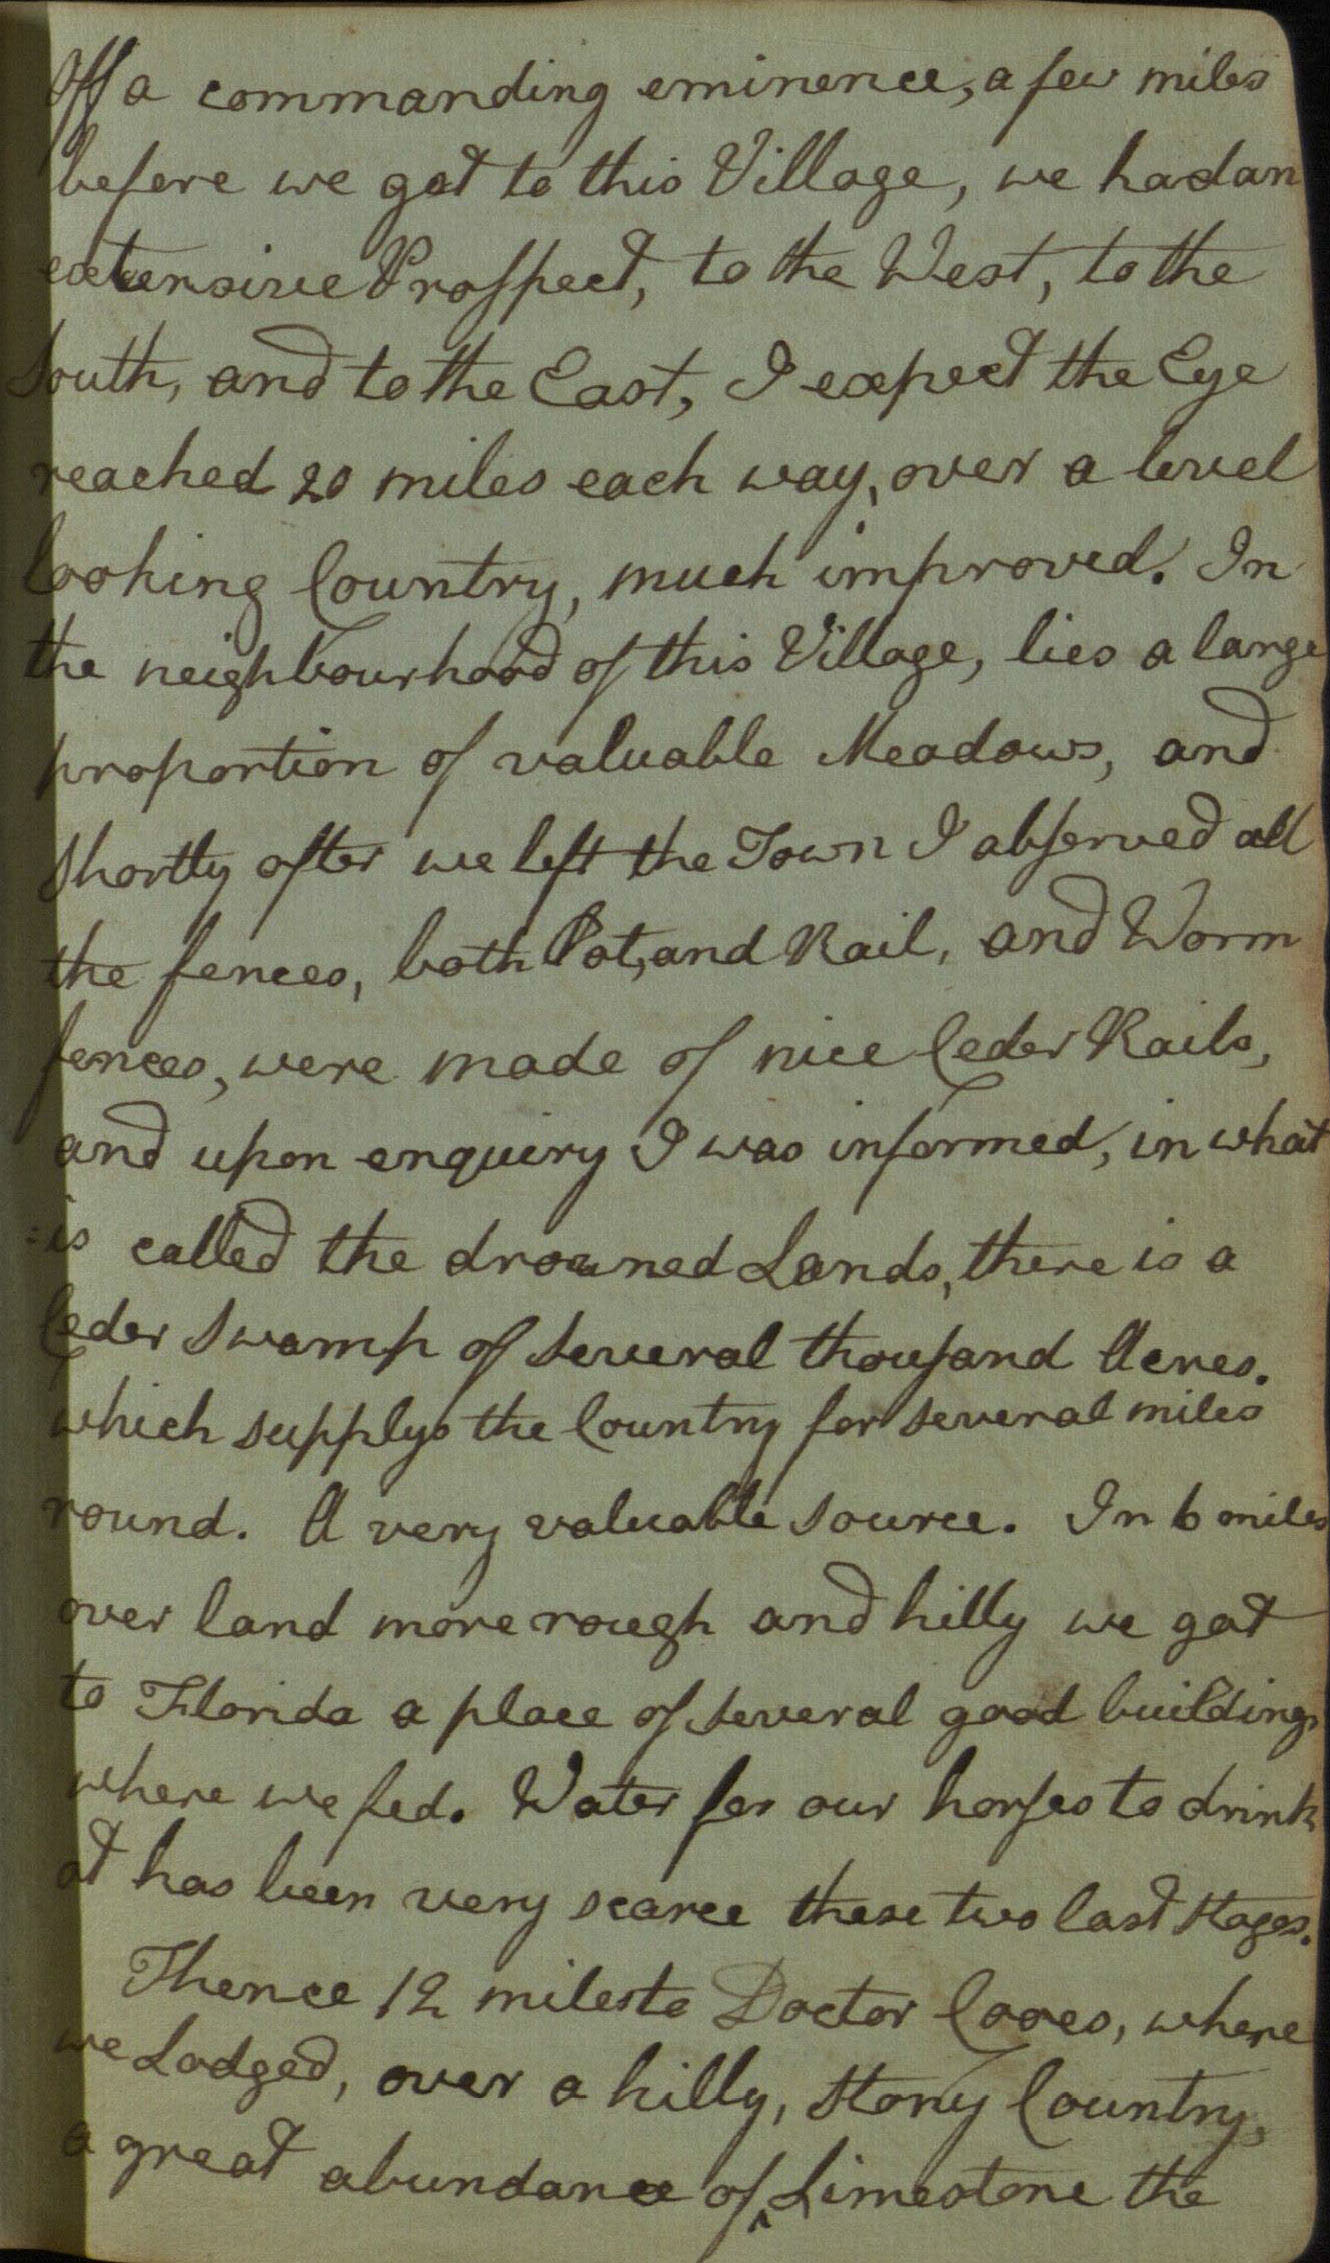 Off a commanding eminence, a few miles
before we got to this Village, we had an
extensive Prospect, to the West, to the
South, and to the East, I expect the Eye
reached 20 miles each way, over a level
looking Country, much improved. In
the neighbourhood of this Village, lies a large
proportion of valuable Meadows, and
shortly after we left the Town I observed all
the fences, both Post, and Rail, and Worm
fences, were made of nice Ceder Rails,
and upon enquiry I was informed, in what
=is called the drowned Lands, there is a
Ceder Swamp of several thousand Acres.
which supplys the Country for several miles
round. A very valuable source. In 6 miles
over land more rough and hilly we got
to Florida a place of several good buildings
where we fed. Water for our horses to drink
at has been very scarce these two last stages.
Thence 12 miles to Doctor Cooes, where
we Lodged, over a hilly, stony Country,
a great abundance of ^ Limestone the